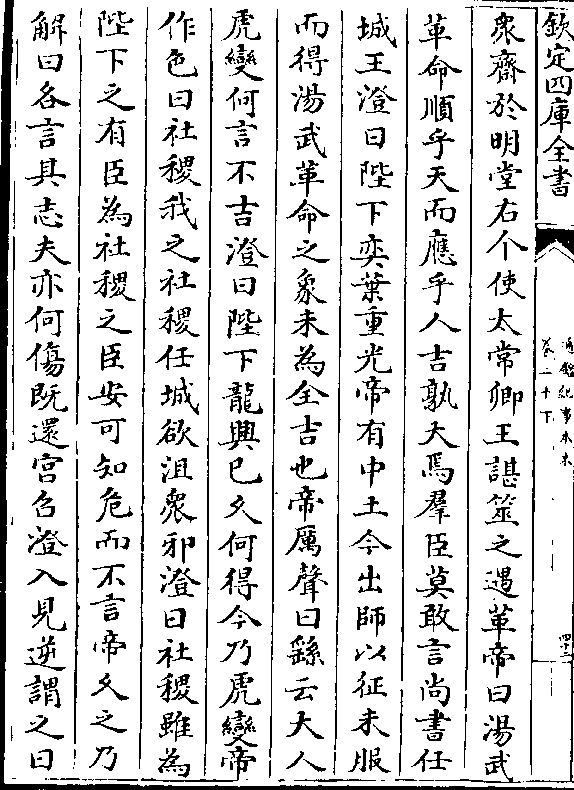 欽定四庫全書
通鑑紀事本末
卷二十下
四十三
衆齋於明堂右个使太常卿王諶筮之遇革帝曰湯武
革命順乎天而應乎人吉孰大焉羣臣莫敢言尚書任
城王澄曰陛下奕葉重光帝有中土今出師以征未服
而得湯武革命之象未為全吉也帝厲聲曰繇云大人
虎變何言不吉澄曰陛下龍興已久何得今乃虎變帝
作色曰社稷我之社稷任城欲沮衆邪澄曰社稷雖為
陛下之有臣為社稷之臣安可知危而不言帝久之乃
解曰各言其志夫亦何傷既還宮召澄入見逆謂之曰